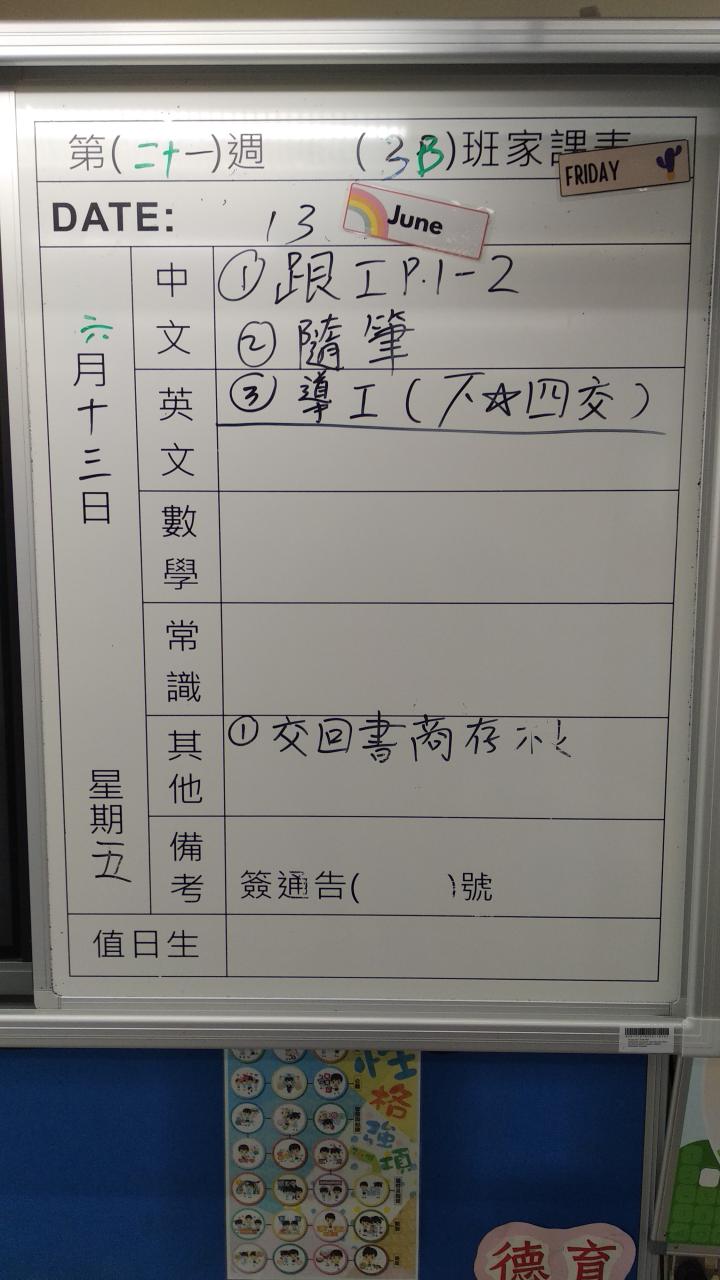 第(二十一)週 (3B)班家課表
FRIDAY
DATE: 13 June
六月十三日 星期五
中文 ①跟工P.1-2
②隨筆
英文 ③導工(下☆四交)
數學
常識
其他 ①交回書商存
備考 簽通告( )號
值日生
性格強項
德育